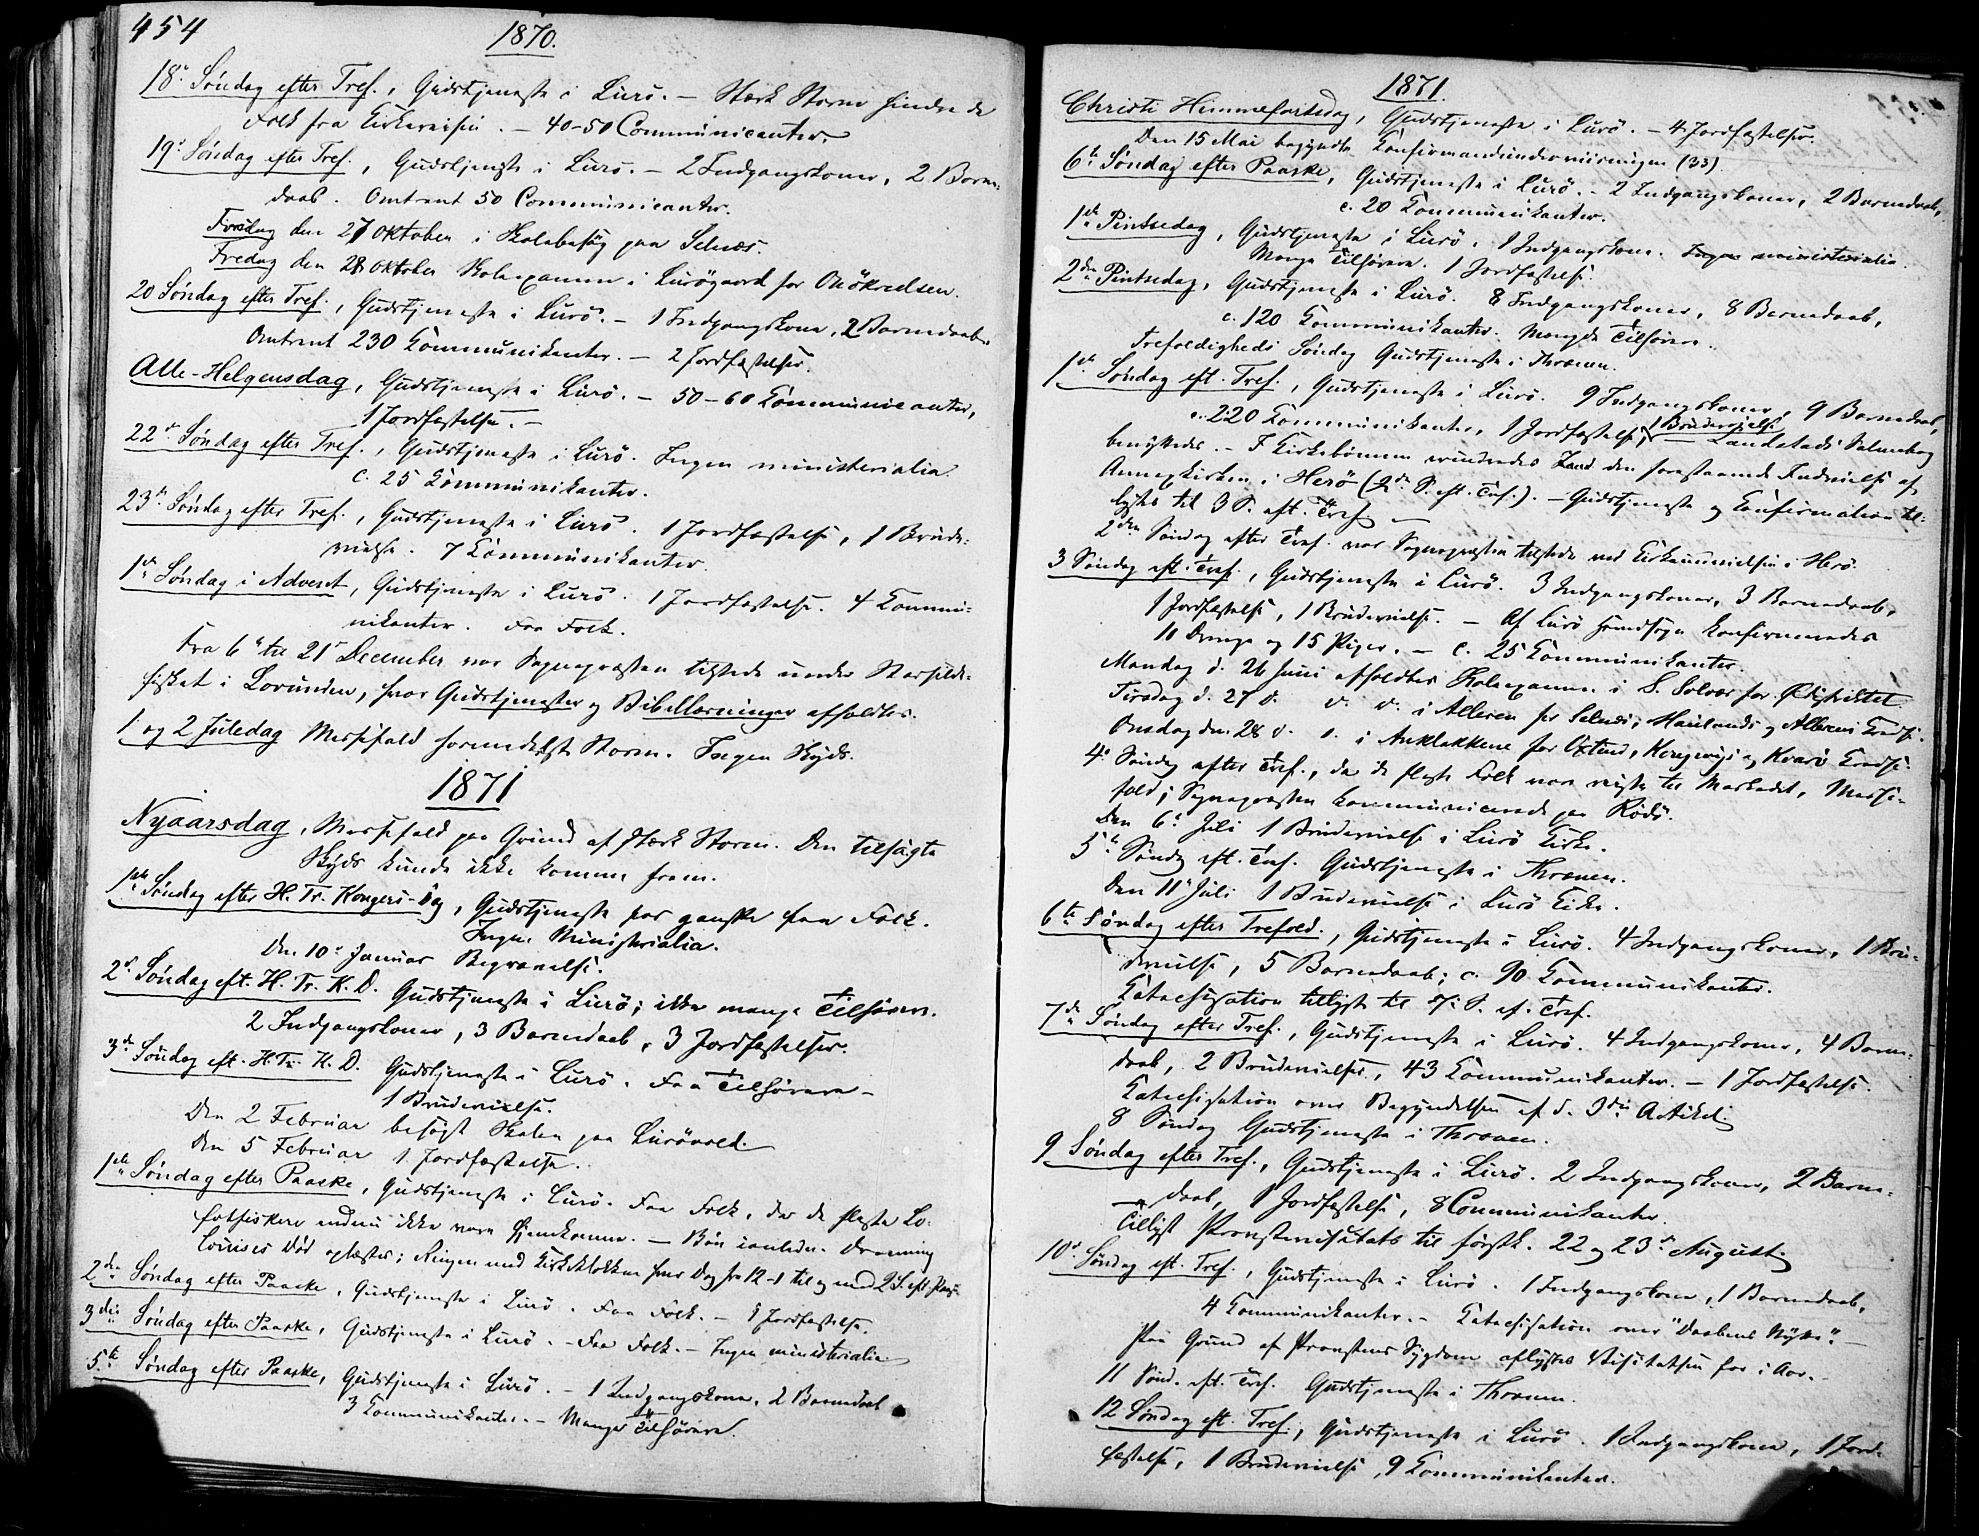 454
1870.
18de Søndag efter Tref., Gudstjeneste i Lurö. — Stærk Storm hindrede
Folk fra Kirkereisen. — 40-50 Communicanter.
19de Søndag efter Tref., Gudstjeneste i Lurö. — 2 Indgangskoner, 2 Barne-
daab. Omtrent 50 Communicanter.
Torsdag den 27 Oktober i Skolebesøg paa Selnæs.
Fredag den 28 Oktober Skoleexamen i Lurögaard for Onökredsen.
20 Søndag efter Tref., Gudstjeneste i Lurö. — 1 Indgangskone, 2 Barnedaab.
Omtrent 230 Kommunikanter. — 2 Jordfæstelser.
Alle-Helgensdag, Gudstjeneste i Lurö. — 50-60 Communicanter,
1 Jordfæstelse. —
22de Søndag efter Tref., Gudstjeneste i Lurö. Ingen ministerialia.
c. 25 Kommunikanter.
23de Søndag efter Tref., Gudstjeneste i Lurö. 1 Jordfæstelse, 1 Brude-
vielse. 7 Kommunikanter.
1ste Søndag i Advent, Gudstjeneste i Lurö. 1 Jordfæstelse. 4 Kommu-
nikanter. Faa Folk.
Fra 6te til 21de December var Sognepræsten tilstede under Storsilde-
fisket i Lovunden, hvor Gudstjenester og Bibellæsninger afholdtes.
1 og 2 Juledag Messefald formedelst Storm. Ingen Skyds.
1871
Nyaarsdag, Messefald paa Grund af stærk Storm. Den tilsagte
Skyds kunde ikke komme frem.
1ste Søndag efter H. Tr. Kongers-Dag, Gudstjeneste for ganske faa Folk.
Ingen Ministerialia.
Den 10de Januar Begravelse.
2den Søndag eft. H. Tr. K. D. Gudstjeneste i Lurö; ikke mange Tilhørere.
2 Indgangskoner, 3 Barnedaab, 3 Jordfæstelser.
3de Søndag eft. H. Tr. K. D. Gudstjeneste i Lurö. Faa Tilhørere —
1 Brudevielse.
Den 2 Februar besøgt Skolen paa Lurövold.
Den 5 Februar 1 Jordfæstelse.
1ste Søndag efter Paaske, Gudstjeneste i Lurö. Faa Folk, da de fleste Lo-
fotfiskere endnu ikke vare hjemkomne. — Bøn i anledn. Dronning
Louises Død oplæstes; Ringen med Kirkeklokken hver Dag fra 12-1 til og med 2 S. eft. Paaske.
2den Søndag efter Paaske, Gudstjeneste i Lurö. Faa Folk. — 1 Jordfæstelse.
3die Søndag efter Paaske, Gudstjeneste i Lurö. — Faa Folk. — Ingen ministerialia.
5te Søndag efter Paaske, Gudstjeneste i Lurö. — 1 Indgangskone, 2 Barnedaab
3 Kommunikanter. — Mange Tilhørere.
1871.
Christi Himmelfartsdag, Gudstjeneste i Lurö. — 4 Jordfæstelser.
Den 15 Mai begyndte Konfirmandunderviisningen (33).
6te Søndag efter Paaske, Gudstjeneste i Lurö. — 2 Indgangskoner, 2 Barnedaab,
c. 20 Kommunikanter.
1ste Pintsedag, Gudstjeneste i Lurö. 1 Indgangskone. Ingen ministerialia.
Mange Tilhørere. 1 Jordfæstelse.
2den Pintsedag, Gudstjeneste i Lurö. 8 Indgangskoner, 8 Barnedaab,
c. 120 Kommunikanter. Mængde Tilhørere.
Trefoldigheds Søndag Gudstjeneste i Thrænen.
1ste Søndag eft. Tref., Gudstjeneste i Lurö. 9 Indgangskoner, 9 Barnedaab,
c. 220 Kommunikanter, 1 Jordfæstelse, 1 Brudevielse Landstads Salmebog
benyttedes. — I Kirkebønnen erindredes den forestaaende Indvielse af
Annexkirken i Herö (2den S. eft. Tref.). — Gudstjeneste og Konfirmation til-
lystes til 3 S. eft. Tref. —
2den Søndag efter Tref. var Sognepræsten tilstede ved Kirkeindvielsen i Herö.
3 Søndag eft. Tref., Gudstjeneste i Lurö. 3 Indgangskoner, 3 Barnedaab,
1 Jordfæstelse, 1 Brudevielse. — Af Lurö Hovedsogn konfirmeredes
10 Drenge og 15 Piger. — c. 25 Kommunikanter.
Mandag d. 26 Juni afholdtes Skoleexamen i S. Solvær for Ødistriktet
Tirsdag d. 27 d. d. d. i Alderen for Selnæs, Haulands og Alderens Kredse.
Onsdag den 28 d. d. i Anklakkene for Oxtind, Kongsvig og Kvarö Kredse.
4de Søndag efter Tref., da de fleste Folk vare reiste til Markedet, Messe-
fald; Sognepræsten kommunicerede paa Rödö.
Den 6te Juli 1 Brudevielse i Lurö Kirke.
5te Søndag eft. Tref. Gudstjeneste i Thrænen.
Den 11te Juli 1 Brudevielse i Lurö Kirke.
6te Søndag efter Trefold., Gudstjeneste i Lurö. 4 Indgangskoner, 1 Bru-
devielse, 5 Barnedaab; c. 90 Kommunikanter.
Katechisation tillyst til 7de S. ef. Tref.
7de Søndag efter Tref., Gudstjeneste i Lurö. 4 Indgangskoner, 4 Barne-
daab, 2 Brudevielser, 43 Kommunikanter. — 1 Jordfæstelse.
Katechisation over Begyndelsen af d. 3die Artikel.
8 Søndag Gudstjeneste i Thrænen.
9 Søndag efter Tref., Gudstjeneste i Lurö. 2 Indgangskoner, 2 Barne-
daab, 1 Jordfæstelse, 8 Communikanter.
Tillyst Provstevisitats til førstk. 22 og 23de August.
10de Søndag eft. Tref., Gudstjeneste i Lurö. 1 Indgangskone, 1 Barnedaab,
4 Kommunikanter. — Katechisation over "Daabens Nytte". —
Paa Grund af Provstens Sygdom aflystes Visitatsen for i Aar. —
11 Sønd. eft. Tref. Gudstjeneste i Thrænen.
12 Søndag eft. Tref., Gudstjeneste i Lurö. 1 Indgangskone, 1 Jord-
fæstelse, 1 Brudevielse, 9 Kommunikanter.